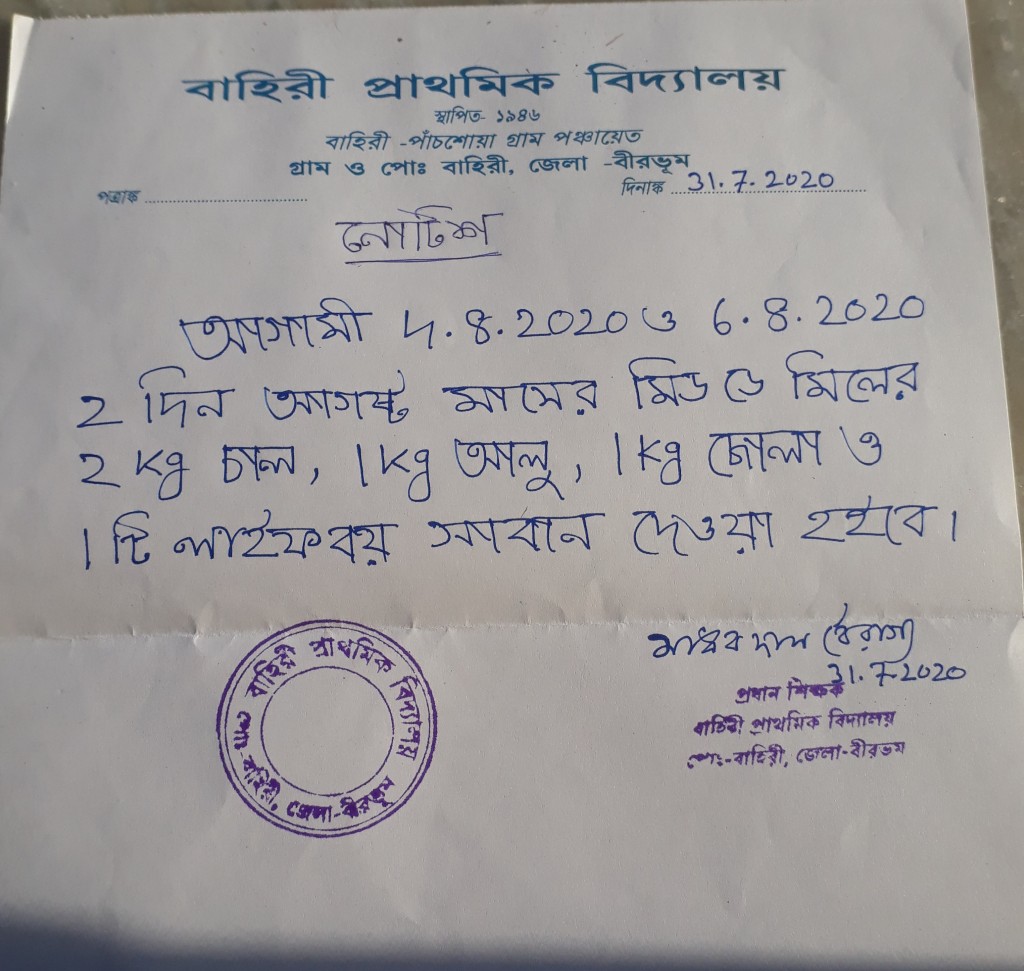 বাহিরী প্রাথমিক বিদ্যালয়
স্থাপিত- ১৯৪৬
বাহিরী -পাঁচশোয়া গ্রাম পঞ্চায়েত
গ্রাম ও পোঃ বাহিরী, জেলা -বীরভূম
পত্রাঙ্ক ........................ দিনাঙ্ক 31.7.2020
নোটিশ
আগামী 5.8.2020 ও 6.8.2020
2 দিন আগষ্ট মাসের মিড ডে মিলের
2 kg চাল, 1 kg আলু, 1 kg ছোলা ও
1 টি লাইফবয় সাবান দেওয়া হইবে।
মাধব দাস বৈরাগ্য
31.7.2020
প্রধান শিক্ষক
বাহিরী প্রাথমিক বিদ্যালয়
পোঃ-বাহিরী, জেলা-বীরভূম
বাহিরী প্রাথমিক বিদ্যালয়
বাহিরী, জেলা-বীরভূম